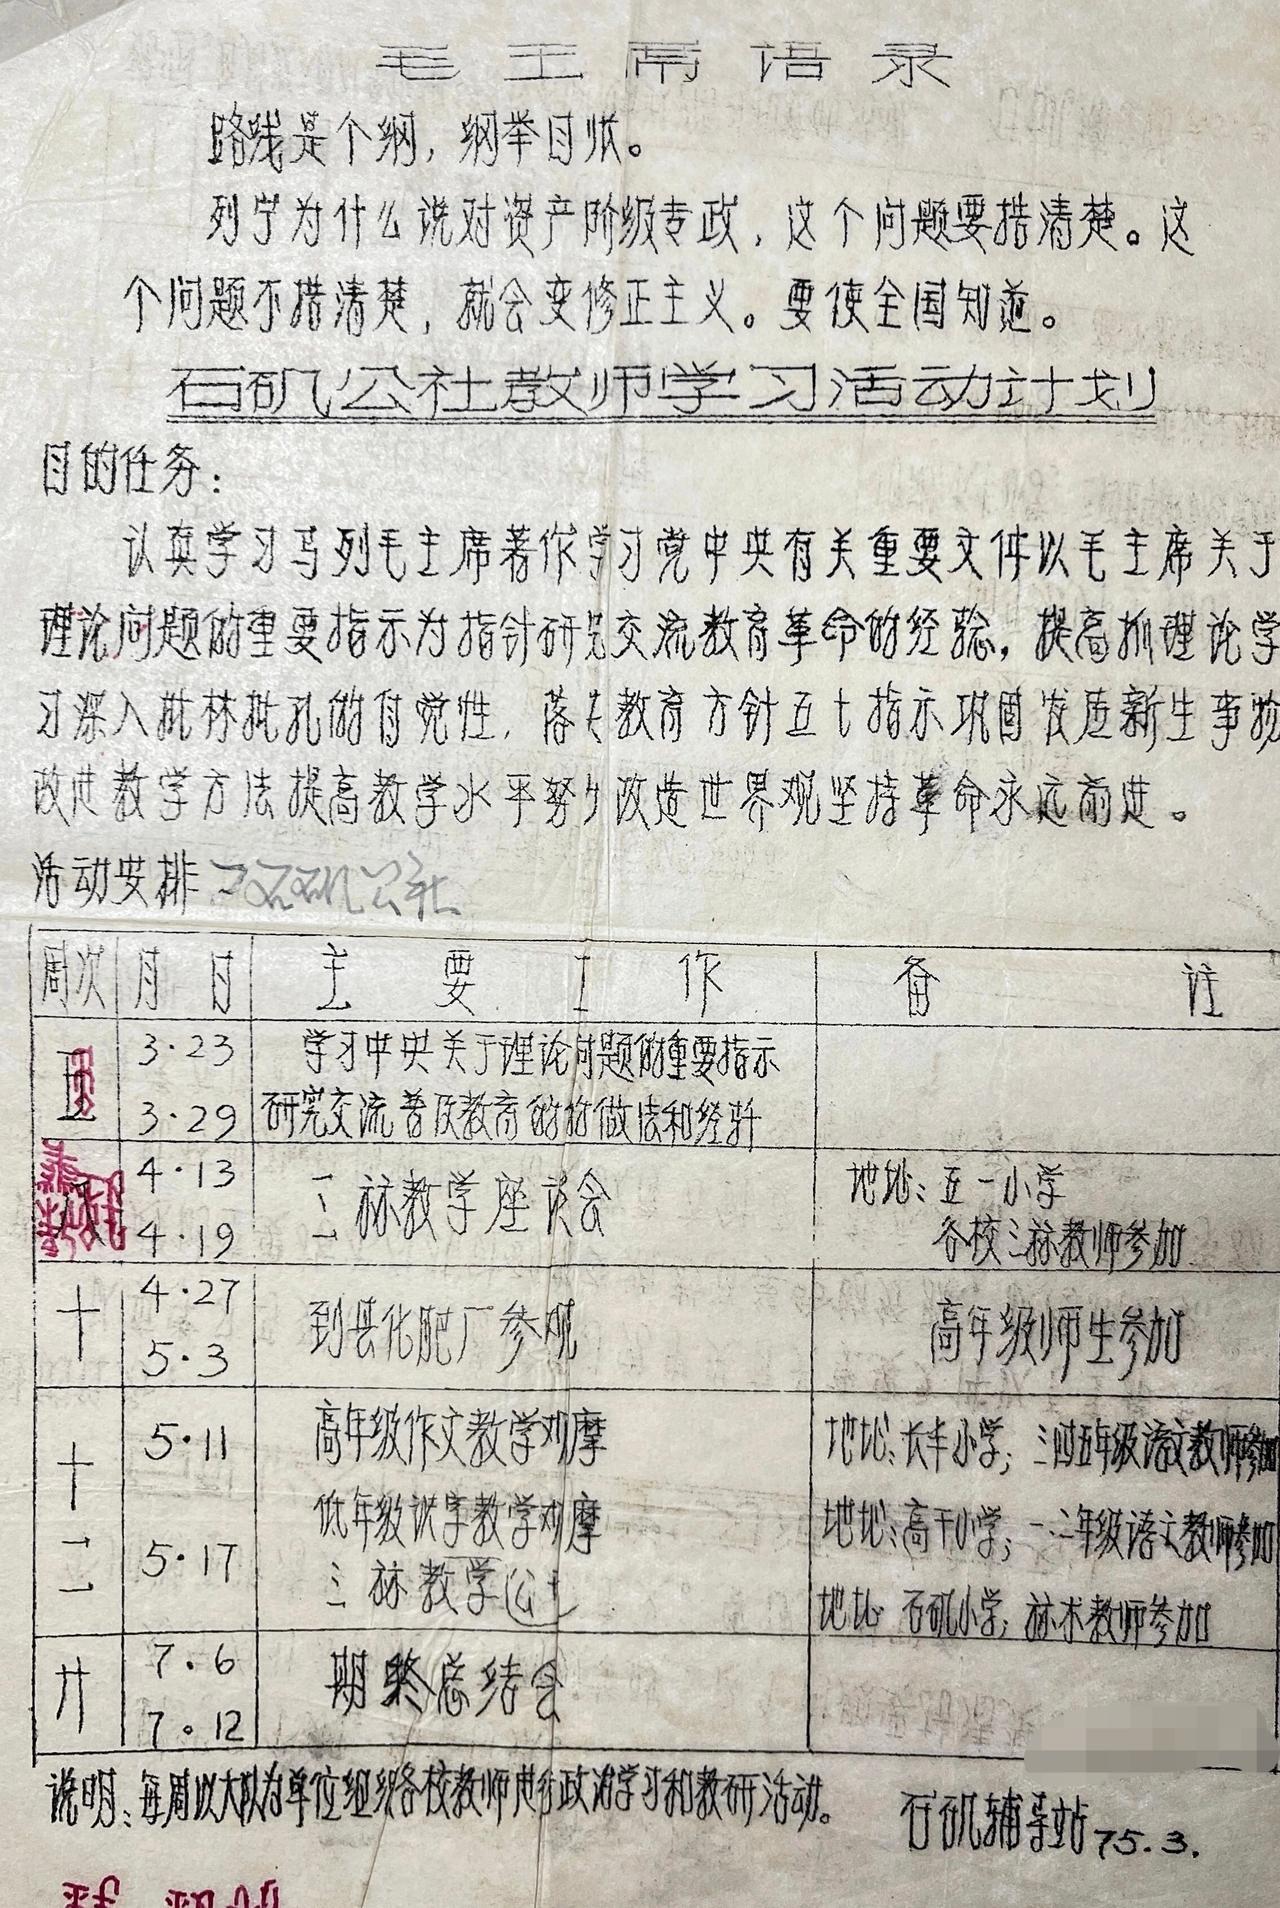 毛主席语录
路线是个纲，纲举目张。
列宁为什么说对资产阶级专政，这个问题要搞清楚。这
个问题不搞清楚，就会变修正主义。要使全国知道。
石矶公社教师学习活动计划
目的任务：
认真学习马列毛主席著作学习党中央有关重要文件以毛主席关于
理论问题的重要指示为指针研究交流教育革命的经验，提高抓理论学
习深入批林批孔的自觉性，落实教育方针五七指示巩固发展新生事物
改进教学方法提高教学水平努力改造世界观坚持革命永远前进。
活动安排 石矶公社
周次 月 日 主要工作 备注
五 3·23 学习中央关于理论问题的重要指示
3·29 研究交流普及教育的做法和经验
八 4·13 4·19 三袜教学座谈会 地址：五一小学
各校三袜教师参加
十 4·27 5·3 到县化肥厂参观 高年级师生参加
十二 5·11 高年级作文教学观摩 地址：长丰小学；三四五年级语文教师参加
低年级识字教学观摩 地址：高干小学；一二年级语文教师参加
5·17 三袜教学 地址 石矶小学；袜术教师参加
廿 7·6 7·12 期终总结会
说明：每周以大队为单位组织各校教师进行政治学习和教研活动。
石矶辅导站 75.3.